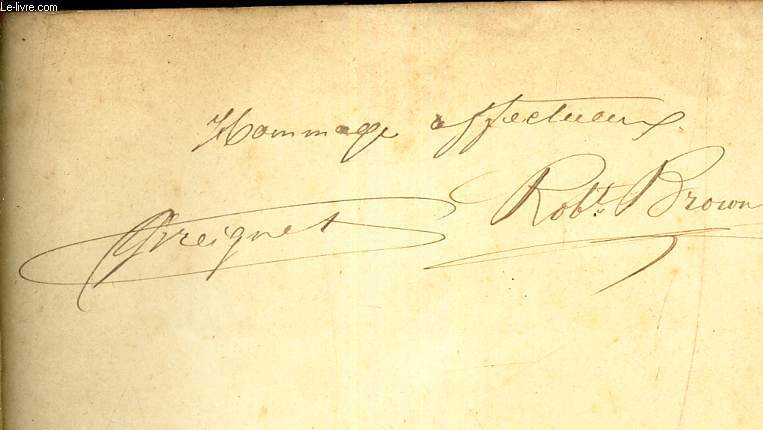 Le-livre.com
Hommage affectueux
Robt. Brown